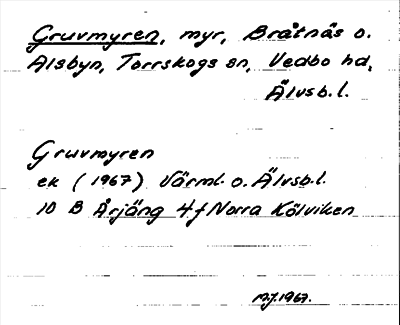 Gruvmyren, myr, Bråtnäs o.
Alsbyn, Torrskogs sn, Vedbo hd,
Älvsb. l.
Gruvmyren
ek (1967) Värml. o. Älvsb. l.
10 B Årjäng 4 f Norra Kölviken
MJ 1967.